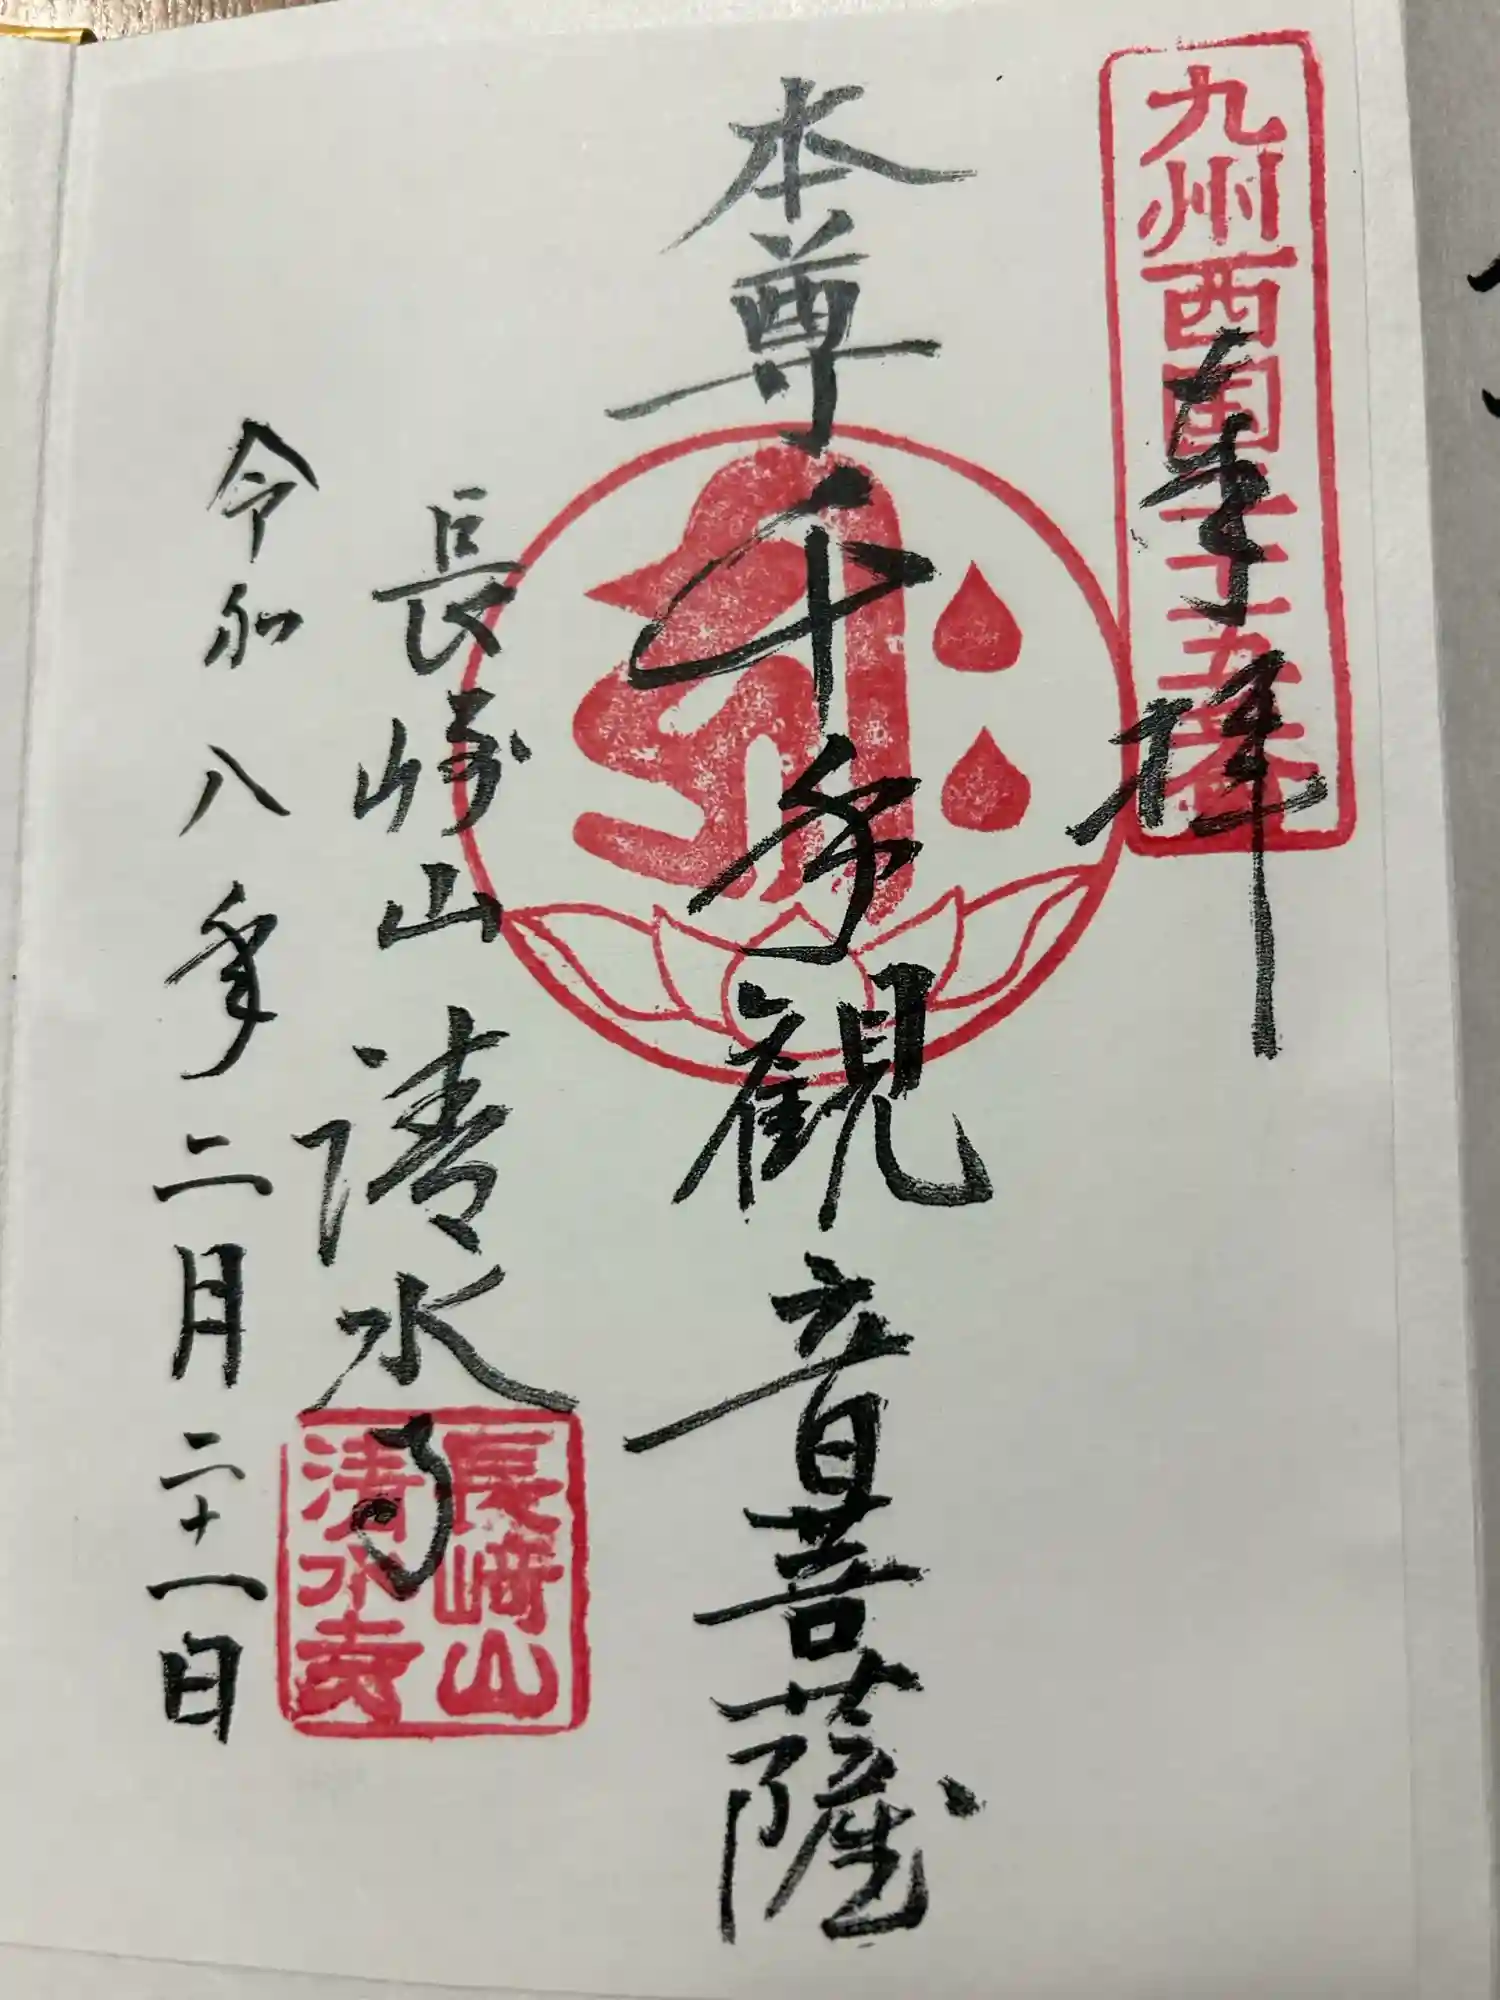 九州西国二十五番
奉拝
本尊千手観音菩薩
長崎山清水寺
長﨑山
清水寺
令和八年二月二十一日